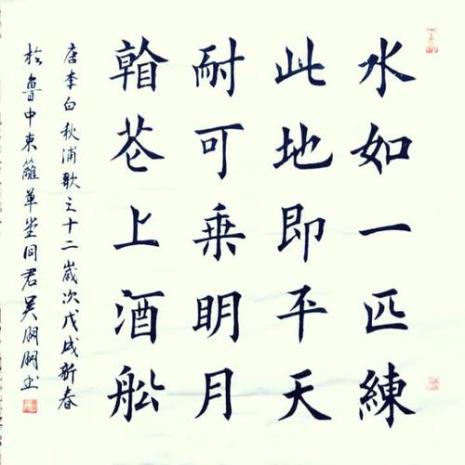 水如一匹練
此地即平天
耐可乗明月
看花上酒舩
唐李白秋浦歌之十二歲次戊戌新春
於魯中東籬草堂同君吴朋朋书